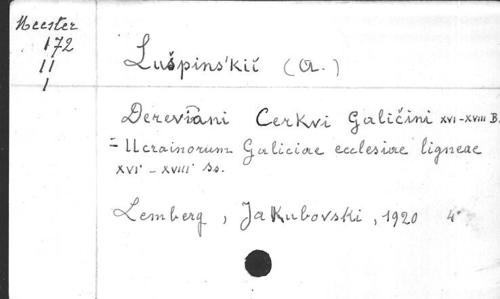 Meester
172
11
1
Lušpins'kiĭ (A.)
Derevi͡ani Cerkvi Galičini XVI-XVIII B.
= Ucrainorum Galiciae ecclesiae ligneae
XVI - XVIII ss.
Lemberg, Jakubovski, 1920 4°